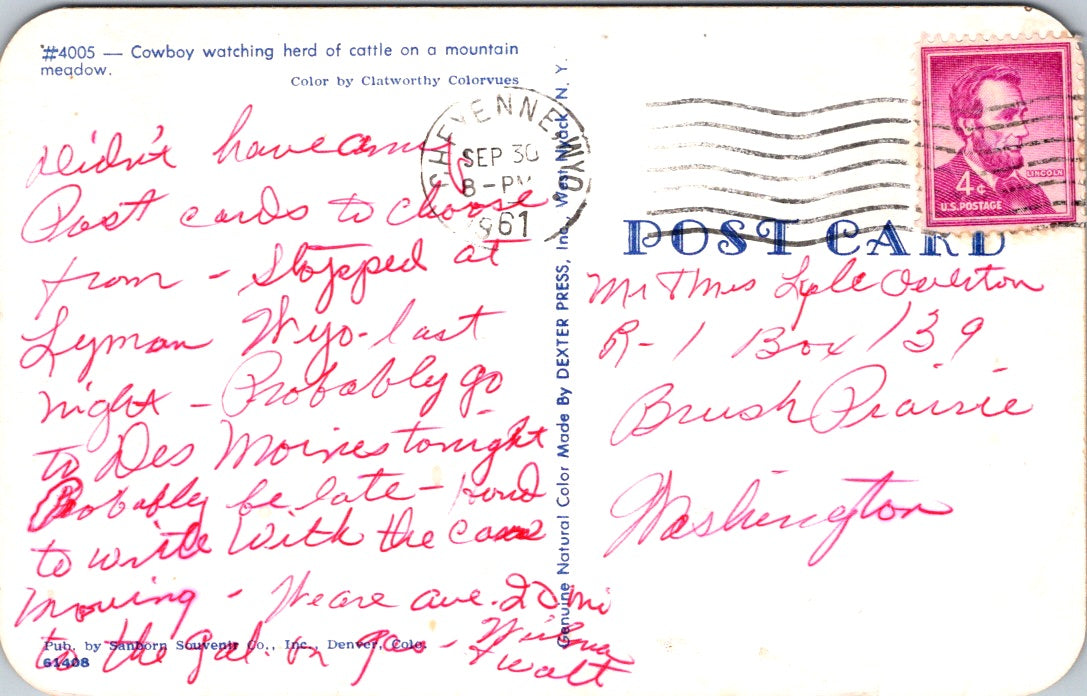 #4005 — Cowboy watching herd of cattle on a mountain
meadow.
Color by Clatworthy Colorvues
Didn't have any
Post cards to choose
from - Stopped at
Lyman Wyo - last
night - Probably go
to Des Moines tonight
Probably be late -
to write with the
moving - We are ave. 20 mi
to the gal. on gas - Wilma
& Walt
Pub. by Sanborn Souvenir Co., Inc., Denver, Colo.
61408
Genuine Natural Color Made By DEXTER PRESS, Inc., West Nyack, N. Y.
CHEYENNE WYO
SEP 30
8 - PM
1961
LINCOLN
4¢
U.S. POSTAGE
POST CARD
Mr & Mrs Lyle Overton
R-1 Box 139
Brush Prairie
Washington